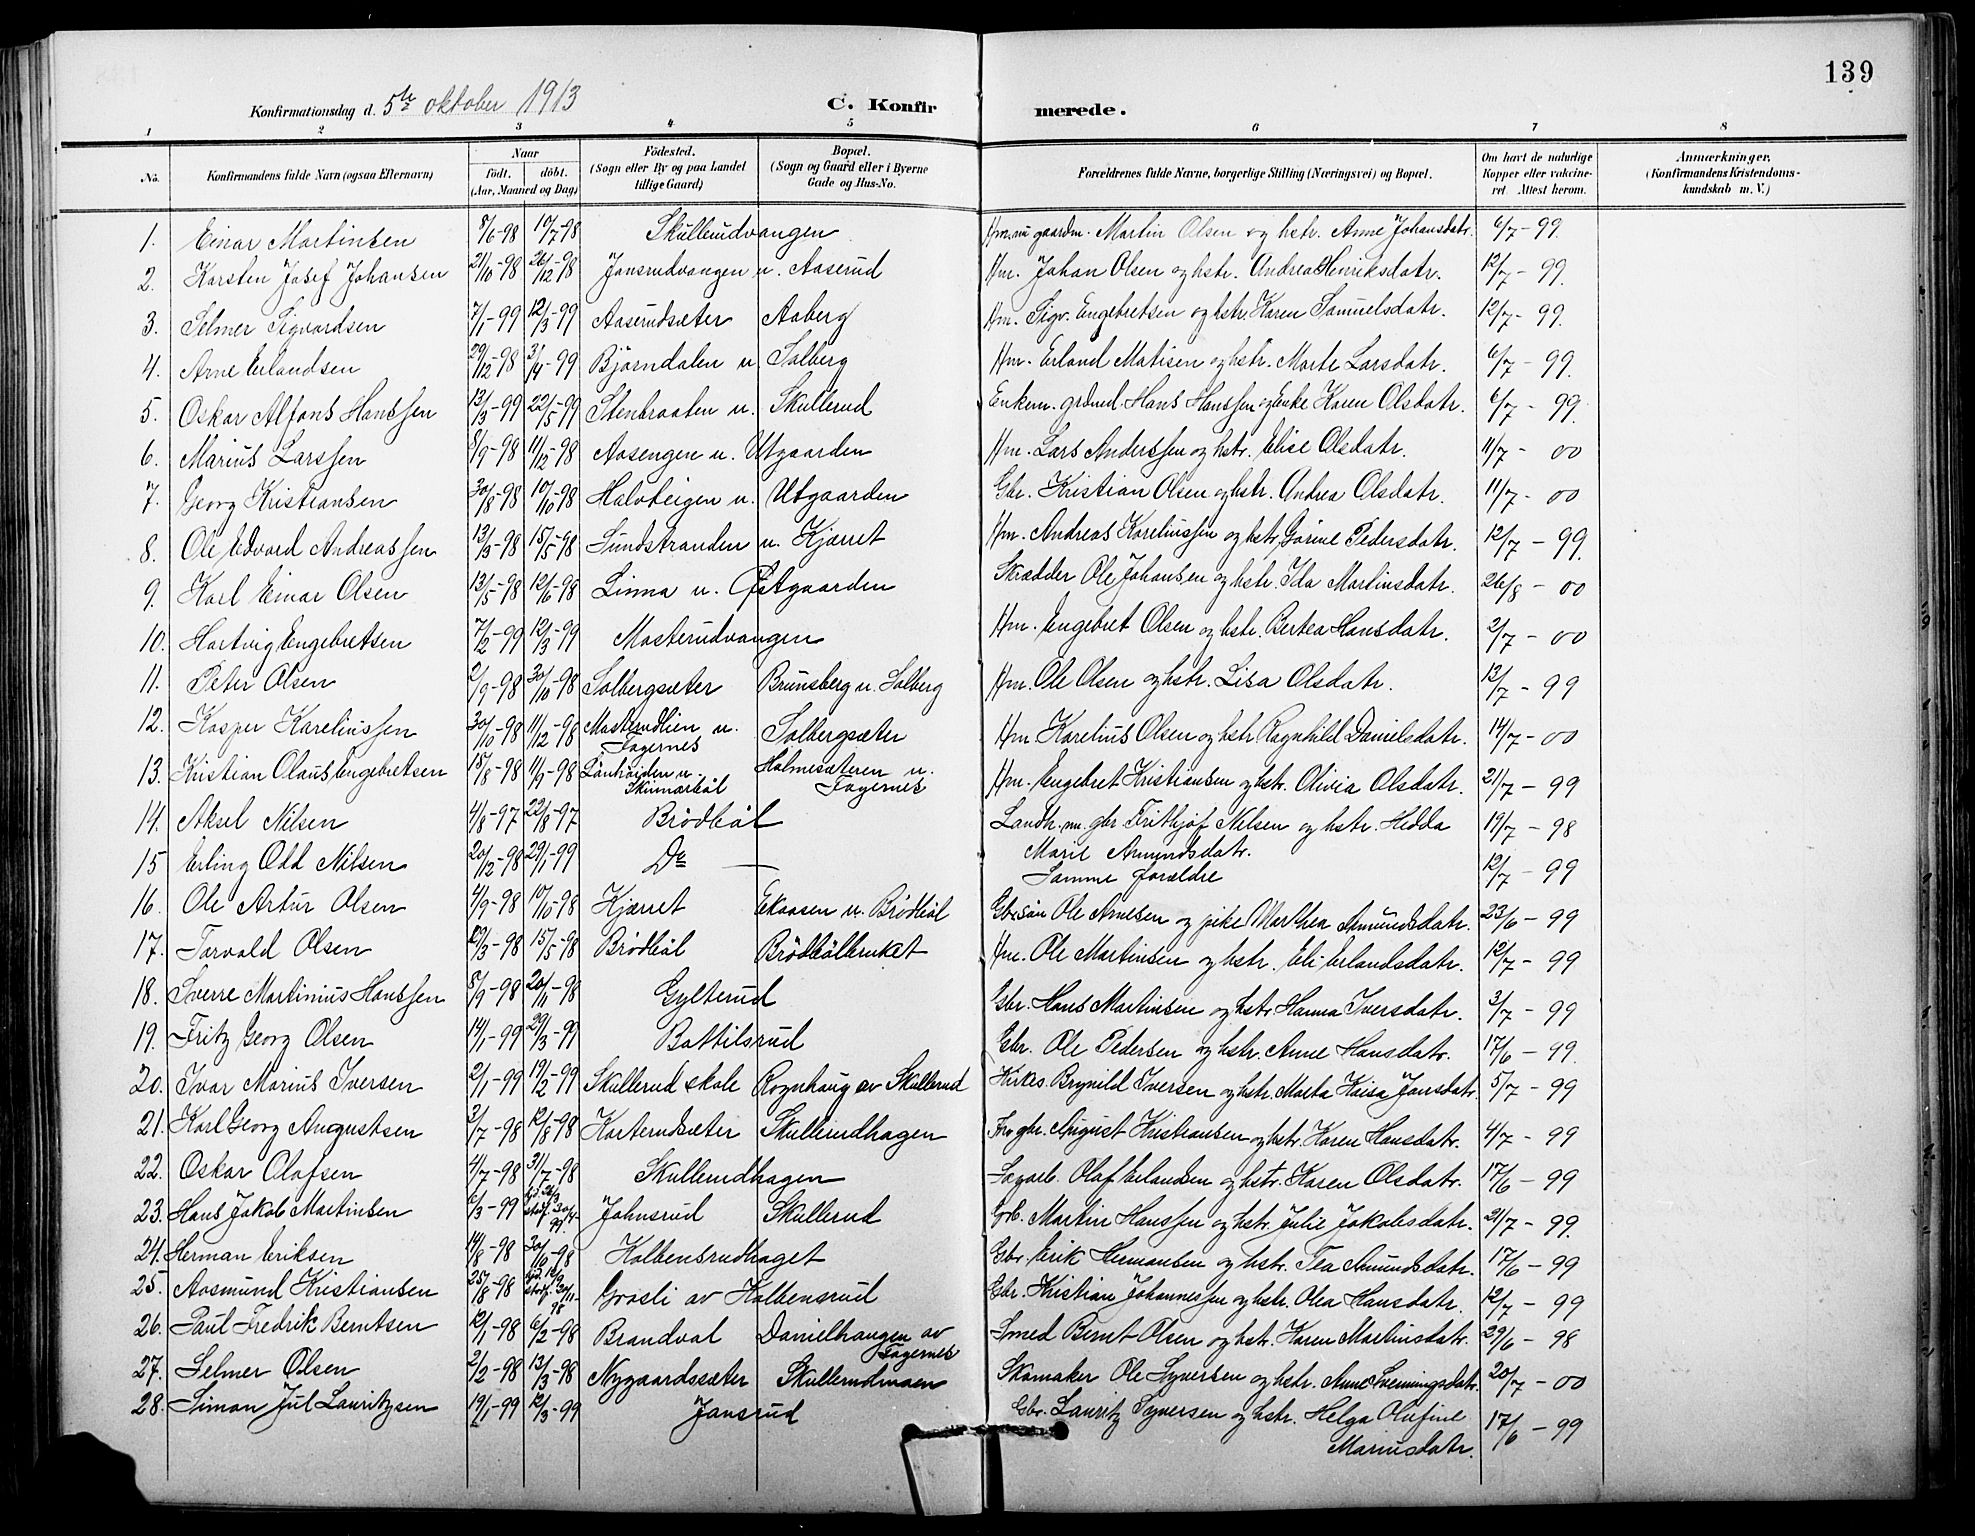 139
Konfirmationsdag d. 5te oktober 1913 C. Konfirmerede.
1 2 3 4 5 6 7 8
No. Konfirmandens fulde Navn (ogsaa Efternavn) Naar födt. döbt. (Aar, Maaned og Dag) Födested. (Sogn eller By og paa Landet tillige Gaard) Bopæl. (Sogn og Gaard eller i Byerne Gade og Hus-No. Forældrenes fulde Navne, borgerlige Stilling (Næringsvei) og Bopæl. Om havt de naturlige Kopper eller vakcineret. Attest herom. Anmærkninger, (Konfirmandens Kristendomskundskab m. V.)
1. Einar Martinsen 8/6-98 10/7-98 Skullerudvangen Hm. nu gaardm. Martin Olsen og hstr. Anne Johansdatr. 6/7-99.
2. Karsten Josef Johansen 21/10-98 26/12-98 Jansrudvangen u. Aaserud Hm. Johan Olsen og hstr. Andrea Henriksdatr. 12/7-99.
3. Selmer Sigvardsen 7/1-99 12/3-99 Aaserudsæter Aaberg Hm. Sigv. Engebretsen og hstr. Karen Samuelsdatr. 12/7-99.
4. Arne Erlandsen 29/12-98 3/4-99 Björndalen u. Solberg Hm. Erland Matisen og hstr. Marte Larsdatr. 6/7-99.
5. Oskar Alfons Hanssen 13/3-99 22/5-99 Stenbraaten u. Skullerud Enkem. grdmd. Hans Hanssen og Enke Karen Olsdatr. 6/7-99.
6. Marius Larssen 8/9-98 11/12-98 Aasengen u. Utgaarden Hm. Lars Anderssen og hstr. Elise Olsdatr. 11/7-00
7. Georg Kristiansen 30/8-98 10/10-98 Halvteigen u. Utgaarden Gbr. Kristian Olsen og hstr. Andrea Olsdatr. 11/7-00
8. Ole Edvard Andreassen 13/3-98 15/5-98 Sundstranden u. Kjærret Hm. Andreas Kareliussen og hstr. Gorine Pedersdatr. 12/7-99.
9. Karl Einar Olsen 13/5-98 12/6-98 Linna u. Østgaarden Skrædder Ole Johansen og hstr. Ida Martinsdatr. 26/8-00
10. Hartvig Engebretsen 7/2-99 12/3-99 Masterudvangen Hm. Engebret Olsen og hstr. Bertea Hansdatr. 2/7-00
11. Peter Olsen 2/9-98 30/10-98 Solbergsæter Brunsberg u. Solberg Hm. Ole Olsen og hstr. Lisa Olsdatr. 12/7-99
12. Kasper Kareliussen 30/10-98 11/12-98 Masterudlien u. Fagernes Solbergsæter Hm. Karelius Olsen og hstr. Ragnhild Danielsdatr. 14/7-00
13. Kristian Olaus Engebretsen 15/8-98 11/9-98 Lönhöiden u. Skinnarböl Holmesæteren u. Fagernes Hm. Engebret Kristiansen og hstr. Olivia Olsdatr. 21/7-99
14. Aksel Nilsen 4/8-97 22/8-97 Brödböl Landh. nu gbr. Frithjof Nilsen og hstr. Hedda Marie Amundsdatr. 19/7-98
15 Erling Odd Nilsen 20/12-98 29/1-99 Do — Samme forældre 12/7-99
16. Ole Artur Olsen 4/9-98 10/10-98 Kjærret Ekaasen u. Brödböl Gbr.sön Ole Arnesen og pike Marthea Amundsdatr. 23/6-99
17. Torvald Olsen 29/3-98 15/5-98 Brödböl Brödbölbruket Hm. Ole Martinsen og hstr. Eli Erlandsdatr. 12/7-99
18. Sverre Martinius Hanssen 8/9-98 20/11-98 Gylterud Gbr. Hans Martinsen og hstr. Hanna Iversdatr. 3/7-99
19. Fritz Georg Olsen 14/1-99 29/3-99 Battilsrud Gbr. Ole Pedersen og hstr. Anne Hansdatr. 17/6-99.
20. Ivar Marius Iversen 2/1-99 19/2-99 Skullerud skole Rognhaug av Skullerud Kirkes. Brynild Iversen og hstr. Marta Kaisa Jansdatr. 5/7-99
21. Karl Georg Augustsen 3/7-98 12/8-98 Karterudsæter Skullerudhagen August Kristiansen og hstr. Karen Hansdatr. 4/7-99
22. Oskar Olafsen 4/7-98 31/7-98 Skullerudhagen Sagarb. Olaf Erlandsen og hstr. Karen Olsdatr. 17/6-99
23. Hans Jakob Martinsen 6/3-99 hjd. 26/3 stadf. 30/4-99 Johnsrud Skullerud Martin Hanssen og hstr. Julie Jakobsdatr. 21/7-99.
24. Herman Eriksen 14/8-98 30/10-98 Kolbensrudhaget Gbr. Erik Hermansen og hstr. Tea Amundsdatr. 17/6-99
25. Aasmund Kristiansen 25/8-98 hjd. stadf. 20/11-98 Grasli av Kolbensrud Gbr. Kristian Johannessen og hstr. Olea Hansdatr. 12/7-99
26. Paul Fredrik Berntsen 12/1-98 6/2-98 Brandval Danielhaugen av Fagernes Smed Bernt Olsen og hstr. Karen Martinsdatr. 29/6-98
27. Selmer Olsen 2/2-98 13/3-98 Nygaardssæter Skullerudmoen Skomaker Ole Syversen og hstr. Anne Svenningsdatr. 20/7-00
28. Simon Jul Lauritzsen 19/1-99 12/3-99 Jansrud Gbr. Lauritz Syversen og hstr. Helga Olufine Mariusdatr. 17/6-99